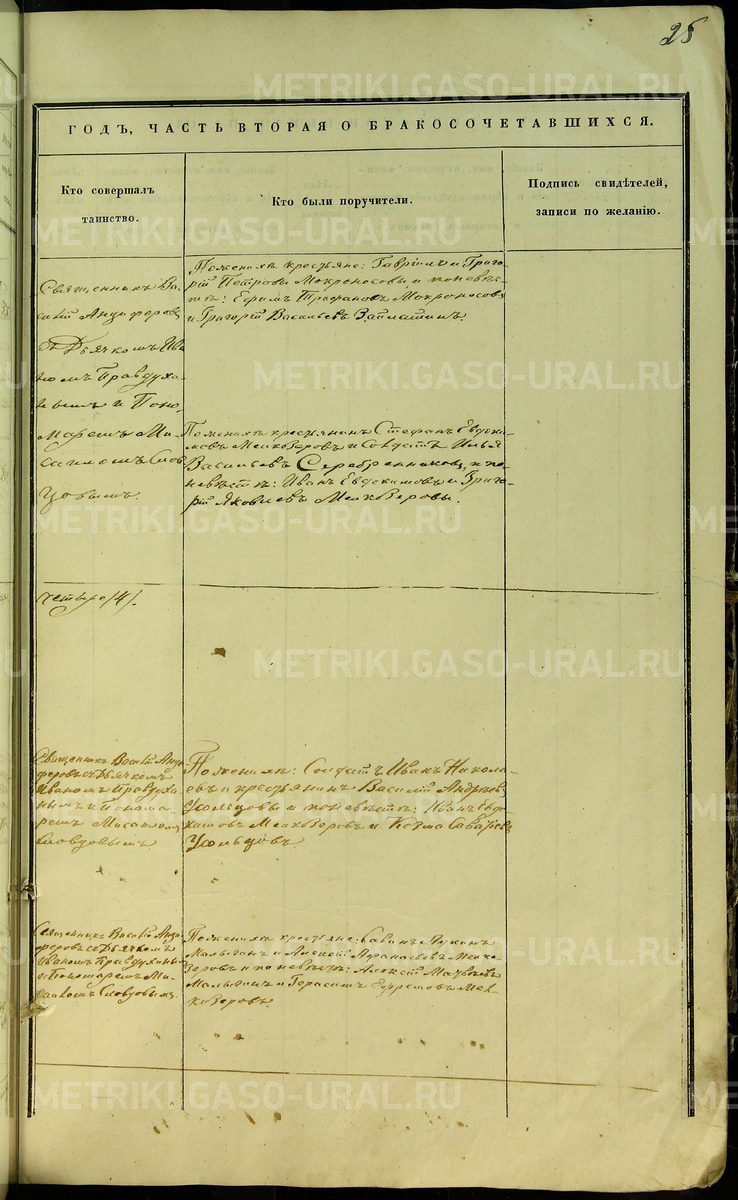 25
ГОДЪ, ЧАСТЬ ВТОРАЯ О БРАКОСОЧЕТАВШИХСЯ.
Кто совершалъ
таинство.
Кто были поручители.
Подпись свидѣтелей,
записи по желанію.
Священникъ Ва-
силій Анциферовъ
съ Дьячкомъ Ива-
номъ Правдухи-
нымъ и Поно-
маремъ Ми-
саиломъ Слов-
цовымъ.
По женихѣ крестьяне: Гавріилъ и Григо-
рій Петровы Мокроносовы, и по невѣс-
тѣ: Ефимъ Мокроносовъ
и Григорій Васильевъ
По женихѣ крестьянинъ Стефанъ Евдоки-
мовъ Мелкозеровъ и Солдатъ Илья
Васильевъ Серебренниковъ, и по
невѣстѣ: Иванъ Евдокимовъ и Григо-
рій Яковлевъ Мелкозеровы.
четыре /4/.
Священникъ Васілій Анци-
феровъ съ Дьячкомъ
Иваномъ Правдухи-
нымъ и Понома-
ремъ Мисаиломъ
Словцовымъ.
По женихѣ: Солдатъ Иванъ Никола-
евъ и крестьянинъ Василій Андреевъ
Усольцовы и по невѣстѣ: Иванъ Евдо-
кимовъ Мелкозеровъ и Козма
Усольцовъ.
Священникъ Васілій Анци-
феровъ съ Дьячкомъ
Иваномъ Правдухинымъ
и Пономаремъ Ми-
саиломъ Словцовымъ.
По женихѣ крестьяне: Савинъ
Малыгинъ и Алексій Афанасьевъ Мелко-
зеровъ и по невѣстѣ: Алексій Матвѣевъ
Малыгинъ и Герасимъ Ефремовъ Мел-
козеровъ.
METRIKI.GASO-URAL.RU